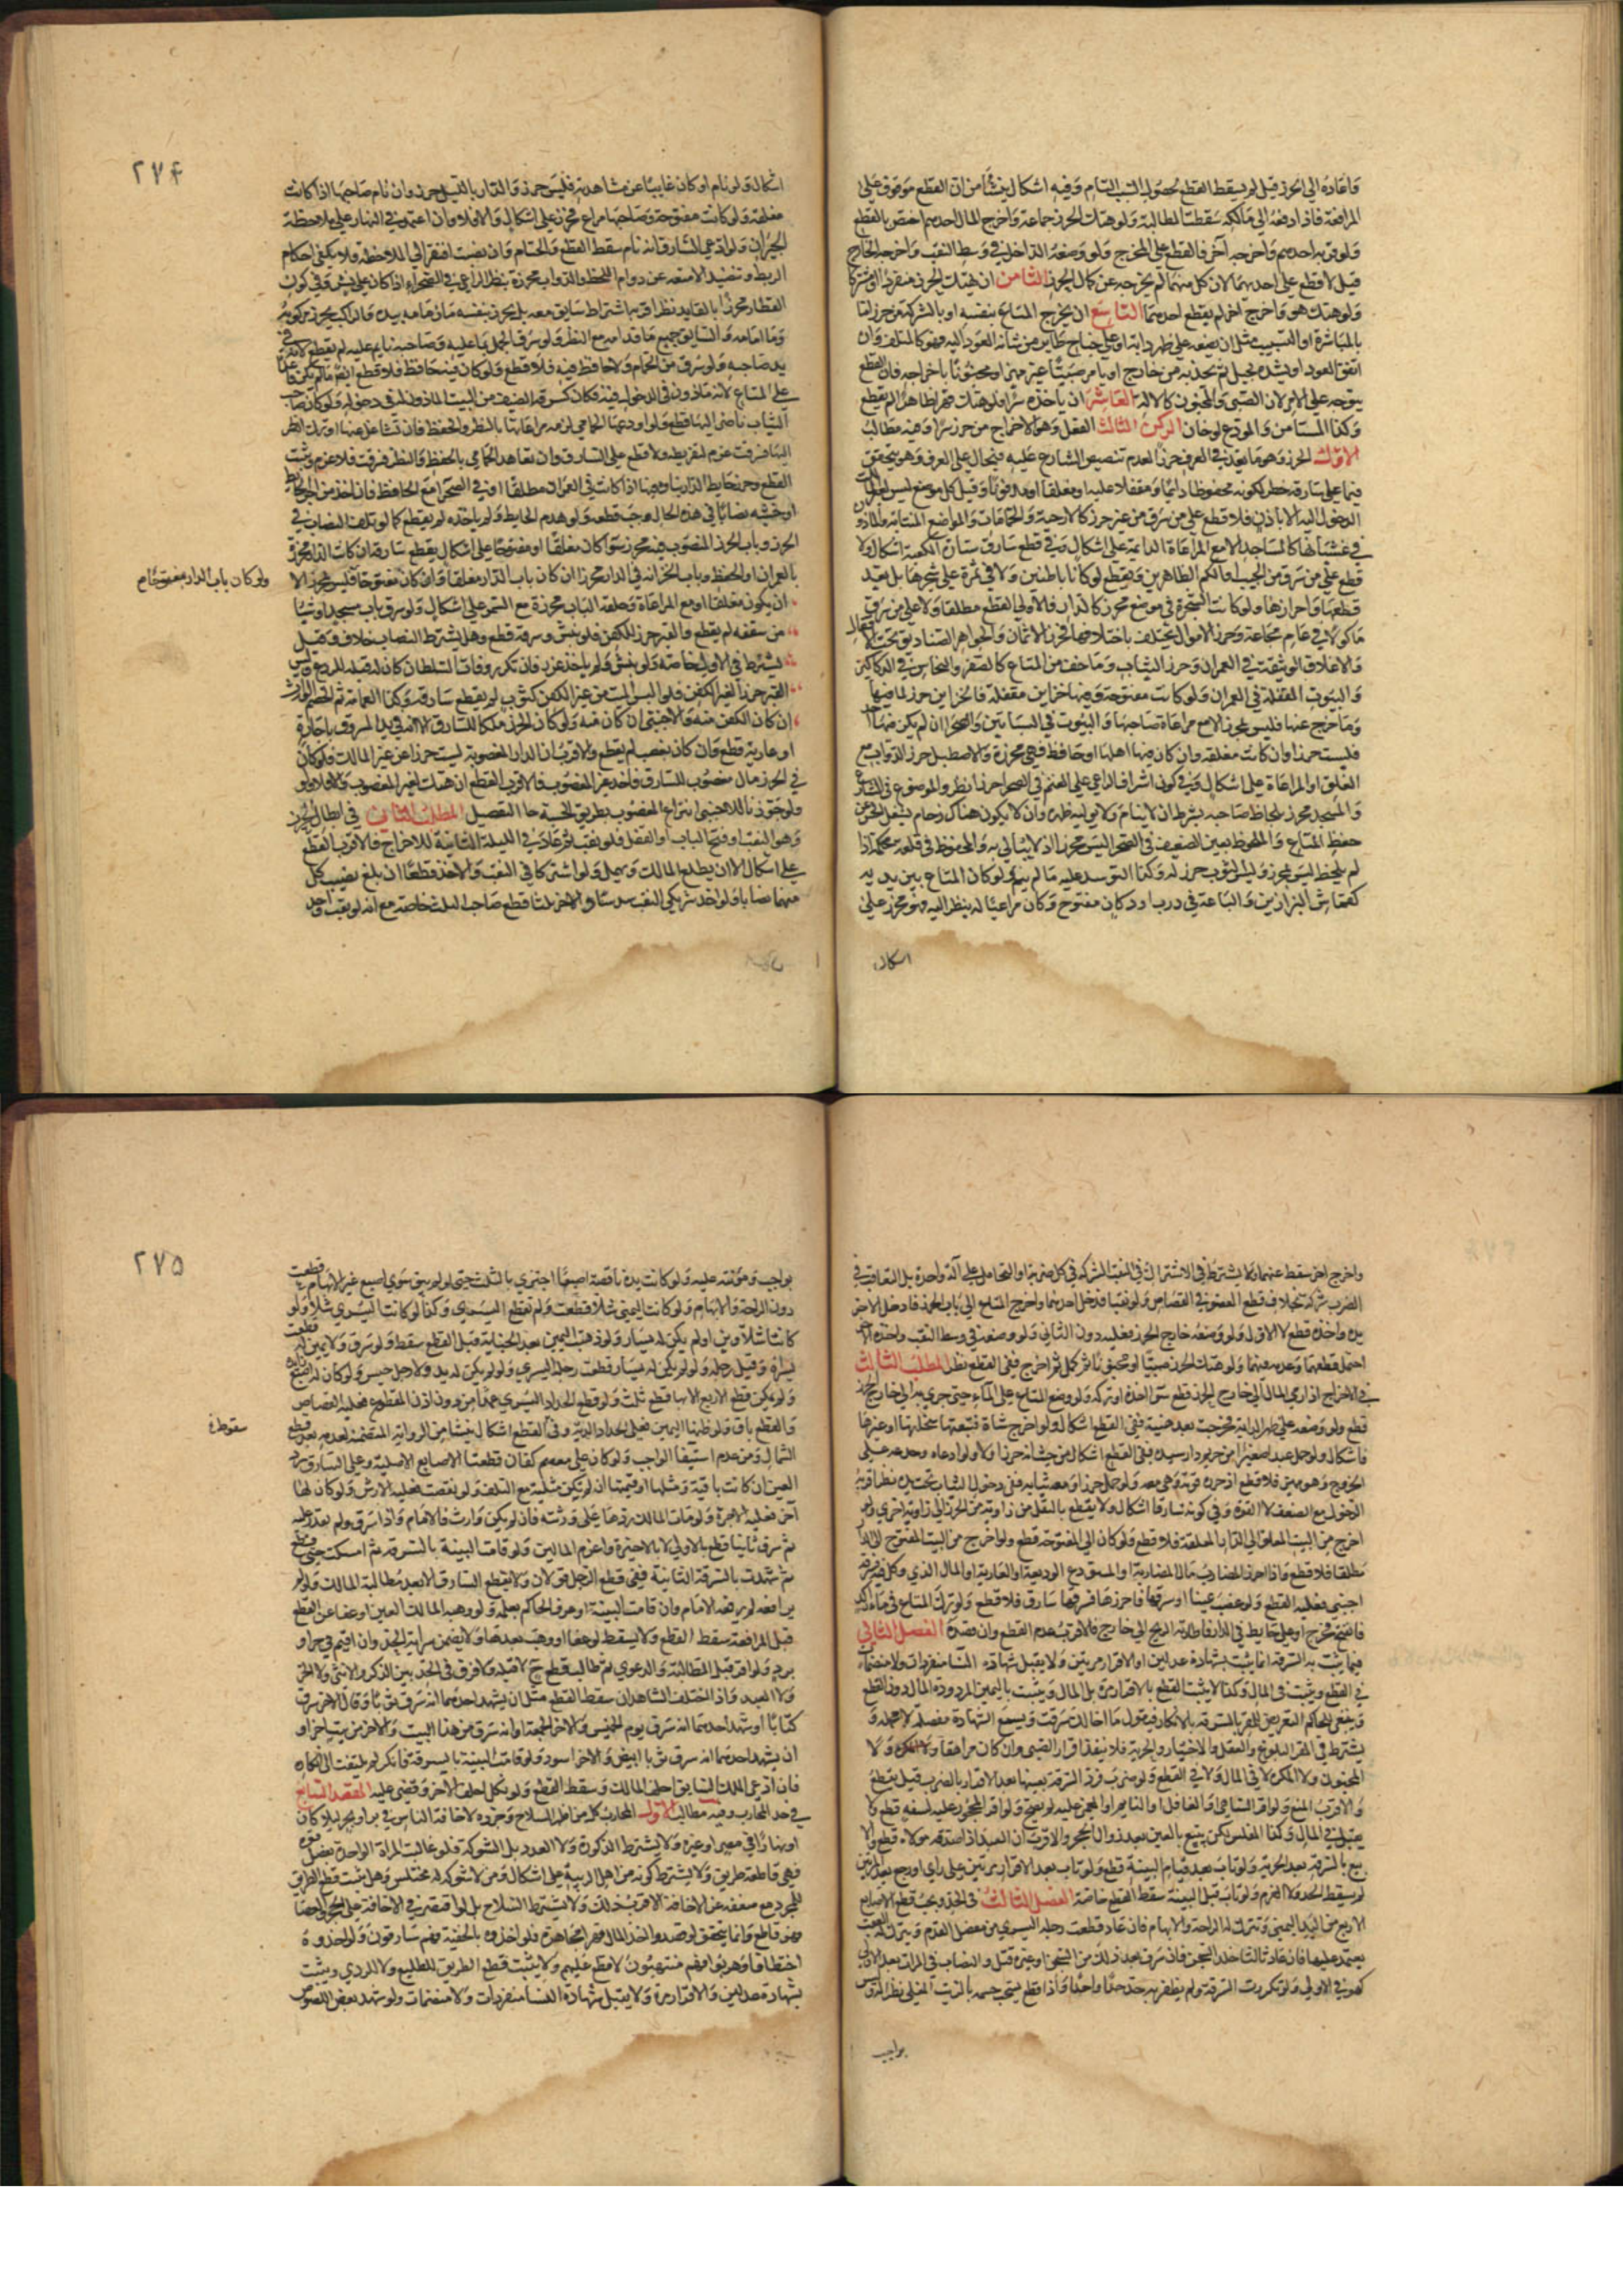 فاعاده الى الحرز قيل لم يسقط القطع لحصول السبب التام وفيه اشكال ينشأ من ان القطع موقوف على
المرافعة فاذا دفعه الى مالكه سقطت المطالبة ولو هتك الحرز جماعة واخرج المال احدهم اختص بالقطع
ولو قربه احدهم واخرجه آخر فالقطع على المخرج ولو وضعه الداخل في وسط النقب واخرجه الخارج
قيل لا قطع على احدهما لان كل منهما لم يخرجه عن كمال الحرز الثامن ان هتك الحرز منفردا او مشتركا
ولو هتك هو واخرج آخر لم يقطع احدهما التاسع ان يخرج المتاع بنفسه او بالشركة من حرز اما
بالمباشرة او التسبيب مثل ان يضعه على ظهر دابة او على جناح طاير من شانه العود اليه فهو كالمتلف وان
اتفق العود او يشده بحبل ثم يجذبه من خارج او يامر صبيا غير مميز او مجنونا باخراجه فان القطع
يتوجه على الامر لان الصبي والمجنون كالالة العاشر ان ياخذه سرا فلو هتك قهرا ظاهرا لم يقطع
وكذا المستامن والمودع لو خان الركن الثالث الفعل وهو الاخراج من حرز سرا وفيه مطالب
الاول الحرز وهو ما يعد في العرف حرزا لعدم تنصيص الشارع عليه فيحال على العرف وهو يتحقق
فيما على سارقه خطر لكونه محفوظا دائما ومقفلا عليه او مغلقا او مدفونا وقيل كل موضع ليس لغير المالك
الدخول اليه الا باذن فلا قطع على من سرق من غير حرز كالارحية والحمامات والمواضع المنتابة والماذون
في غشيانها كالمساجد الا مع المراعاة الدائمة على اشكال وفي قطع سارق ستارة الكعبة اشكال ولا
قطع على من سرق من الجيب او الكم الظاهرين ويقطع لو كانا باطنين ولا في ثمرة على شجرها بل بعد
قطعها واحرازها ولو كانت الشجرة في موضع محرز كالدار فالاولى القطع مطلقا ولا على من سرق
ماكولا في عام مجاعة وحرز الاموال يختلف باختلافها فحرز الاثمان والجواهر الصناديق تحت الاقفال
والاغلاق الوثيقة في العمران وحرز الثياب وما خف من المتاع كالصفر والنحاس في الدكاكين
والبيوت المقفلة في العمران ولو كانت مفتوحة وفيها خزاين مقفلة فالخزاين حرز لما فيها
وما خرج عنها فليس بمحرز الا مع مراعاة صاحبها والبيوت في البساتين والصحراء ان لم يكن فيها احد
فليست حرزا وان كانت مغلقة وان كان فيها اهلها او حافظ فهي محرزة والاصطبل حرز الدواب مع
الغلق او المراعاة على اشكال وفي كون اشراف الراعي على الغنم في الصحراء حرزا نظر والموضوع في الشارع
والمسجد محرز بلحاظ صاحبه بشرط ان لا ينام ولا يوليه ظهره وان لا يكون هناك زحام يشغل الحس عن
حفظ المتاع والملحوظ بعين الضعيف في الصحراء ليس محرزا اذ لا يبالي به والمحفوظ في قلعة محكمة اذا
لم يلحظ ليس بمحرز وليس الثوب حرز له وكذا التوسد عليه ما لم ينم ولو كان المتاع بين يديه
كقماش البزازين والباعة في درب او دكان مفتوح وكان مراعيا له ينظر اليه فهو محرز على
اشكال
٢٧۴
اشكال ولو نام او كان غايبا عن مشاهدته فليس بحرز والدار بالليل حرز وان نام صاحبها اذا كانت
مغلقة ولو كانت مفتوحة وصاحبها مراع فمحرز على اشكال والا فلا وان اعتمد في النهار على ملاحظة
الجيران ولو ادعى السارق انه نام سقط القطع والخيام وان نصبت افتقر الى الملاحظة فلا يكفي احكام
الربط وتنضيد الامتعة عن دوام اللحظ والدواب محرزة بنظر الراعي في الصحراء اذا كان على نشز وفي كون
القطار محرزا بالقايد نظر اقربه اشتراط سايق معه بل يحرز بنفسه ما زمامه بيده والراكب يحرز مركوبه
وما امامه والسايق جميع ما قدامه مع النظر ولو سرق الجمل بما عليه وصاحبه نايم عليه لم يقطع لانه في
يد صاحبه ولو سرق من الحمام ولا حافظ فيه فلا قطع ولو كان فيه حافظ فلا قطع ايضا ما لم يكن قاعدا
على المتاع لانه ماذون في الدخول فيه فكان كسرقة الضيف من البيت الماذون له في دخوله ولو كان صاحب
الثياب ناظرا اليها قطع ولو اودعها الحمامي لزمه مراعاتها بالنظر والحفظ فان تشاغل عنها او ترك النظر
اليها فسرقت غرم لتفريطه ولا قطع على السارق وان تعاهد الحمامي بالحفظ والنظر فسرقت فلا غرم ويثبت
القطع وحرز حايط الدار بناؤه فيها اذا كانت في العمران مطلقا او في الصحراء مع الحافظ فان اخذ من آجر الحايط
او خشبه نصابا في هذه الحال وجب قطعه ولو هدم الحايط ولم ياخذه لم يقطع كما لو تلف النصاب في
الحرز وباب الحرز المنصوب فيه محرز سواء كان مغلقا او مفتوحا على اشكال يقطع سارقه ان كانت الدار محرزة
بالعمران او الحفظ وباب الخزانة في الدار محرز ان كان باب الدار مغلقا وان كان مفتوحا فليس بمحرز الا
ولو كان باب الدار مفتوحا م
ان يكون مغلقا او مع المراعاة وحلقة الباب محرزة مع السمر على اشكال ولو سرق باب مسجد او شيئا
من سقفه لم يقطع والقبر حرز للكفن فلو نبش وسرقه قطع وهل يشترط النصاب خلاف وقيل
يشترط في الاولى خاصة ولو نبش ولم ياخذ عزر فان تكرر وفات السلطان كان له قتله للردع وليس
القبر حرزا لغير الكفن فلو البس الميت من غير الكفن كثوب لم يقطع سارقه وكذا العمامة ثم الخصم الوارث
ان كان الكفن منه والاجنبي ان كان منه ولو كان الحرز ملكا للسارق الا انه في يد المسروق باجارة
او عارية قطع وان كان بغصب لم يقطع والاقرب ان الدار المغصوبة ليست حرزا عن غير المالك فلو كان
في الحرز مال مغصوب للسارق فاخذ غير المغصوب فالاقرب القطع ان هتك لغير المغصوب والا فلا ولو
ولو جوزنا للاجنبي انتزاع المغصوب بطريق الحسبة جاء التفصيل المطلب الثاني في ابطال الحرز
وهو النقب او فتح الباب او القفل فلو نقب ثم عاد في الليلة الثانية للاخراج فالاقرب القطع
على اشكال الا ان يطلع المالك ويهمل ولو اشتركا في النقب والاخذ قطعا ان بلغ نصيب كل
منهما نصابا ولو اخذ شريكي النقب سدسا والاخر ثلثا قطع صاحب الثلث خاصة مع انه لو نقب واحد
واخرج اخر سقط عنهما ولا يشترط في الاشتراك في النقب الشركة في كل ضربة او التحامل على آلة واحدة بل التعاقب في
الضرب شركة بخلاف قطع العضو في القصاص ولو نقبا فدخل احدهما واخرج المتاع الى باب الحرز فادخل الاخر
يده واخذه قطع لا الاول ولو وضعه خارج الحرز فعليه دون الثاني ولو وضعه في وسط النقب واخذه الاخر
احتمل قطعهما وعدمه فيهما ولو هتك الحرز صبيا او مجنون ثم كمل ثم اخرج ففي القطع نظر المطلب الثالث
في الاخراج اذا رمى المال الى خارج الحرز قطع سواء اخذه او تركه ولو وضع المتاع على الماء حتى جرى به الى خارج الحرز
قطع ولو وضعه على ظهر الدابة فخرجت بعد هنيئة ففي القطع اشكال ولو اخرج شاة فتبعتها سخلتها او غيرها
فاشكال ولو حمل عبدا صغيرا من حريم دار سيده ففي القطع اشكال من حيث انه حرز او لا ولو دعاه وخدعه على
الخروج وهو مميز فلا قطع اذ حرزه قوته وهي معه ولو حمل حرا ومعه ثيابه ففي دخول الثياب تحت يده نظر اقربه
الدخول مع الضعف لا القوة وفي كونه سارقا اشكال ولا يقطع بالنقل من زاوية من الحرز الى زاوية اخرى ولو
اخرج من البيت المغلق الى الدار المغلقة فلا قطع ولو كان الى المفتوحة قطع ولو اخرج من البيت المفتوح الى الدار
مطلقا فلا قطع واذا احرز المضارب مال المضاربة او المستودع الوديعة او العارية او المال الذي وكل فيه فسرقه
اجنبي فعليه القطع ولو غصب عينا او سرقها فاحرزها فسرقها سارق فلا قطع ولو ترك المتاع في ماء راكد
فانفتح فخرج او على حايط في الدار فاطارته الريح الى خارج فالاقرب عدم القطع وان قصده الفصل الثاني
فيما يثبت به السرقة انما يثبت بشهادة عدلين او الاقرار مرتين ولا يقبل شهادة النساء منفردات ولا منضمات
في القطع ويثبت في المال وكذا لا يثبت القطع بالاقرار مرة بل المال ويثبت باليمين المردودة المال دون القطع
وينبغي للحاكم التعريض للمقر بالسرقة بالانكار فيقول ما اخالك سرقت ويسمع الشهادة مفصلة لا مجملة و
يشترط في المقر البلوغ والعقل والاختيار والحرية فلا ينفذ اقرار الصبي وان كان مراهقا ولا
المجنون ولا المكره لا في المال ولا في القطع ولو ضرب فرد السرقة بعينها بعد الاقرار بالضرب قيل يقطع
والاقرب المنع ولو اقر الساهي او الغافل او النايم او المغمى عليه لم يصح ولو اقر المحجور عليه لسفه قطع ولا
يقبل في المال وكذا المفلس لكن يتبع بالعين بعد زوال الحجر والاقرب ان العبد اذا صدقه مولاه قطع والا
يتبع بالسرقة بعد الحرية ولو تاب بعد قيام البينة قطع ولو تاب بعد الاقرار مرتين على راي او رجع بعد المرتين
لم يسقط الحد ولا الغرم ولو تاب قبل البينة سقط القطع خاصة الفصل الثالث في الحد ويجب قطع الاصابع
الاربع من اليد اليمنى وتترك له الراحة والابهام فان عاد قطعت رجله اليسرى من مفصل القدم ويترك له العقب
يعتمد عليها فان عاد ثالثا خلد السجن فان سرق بعد ذلك من السجن او غيره قتل والنصاب في المرات بعد الاولى
كهو في الاولى ولو تكررت السرقة ولم يظفر به حد حدا واحدا واذا قطع يستحب حسمه بالزيت المغلي نظرا له وليس
بواجب
٢٧۵
بواجب ومؤنته عليه ولو كانت يده ناقصة اصبعا اجتزئ بالثلث حتى لو لم يبق سوى اصبع غير الابهام قطعت
دون الراحة والابهام ولو كانت اليمنى شلاء قطعت ولم تقطع اليسرى وكذا لو كانت اليسرى شلاء ولو
كانتا شلاوين او لم يكن له يسار ولو ذهبت اليمين بعد الجناية قبل القطع سقط ولو سرق ولا يمين له قطعت
يسراه وقيل رجله ولو لم يكن له يسار قطعت رجله اليسرى ولو لم يكن له يد ولا رجل حبس ولو كان له اصبع زائدة
ولم يكن قطع الاربع الا بها قطع ثلث ولو قطع الحداد اليسرى عمدا من دون اذن المقطوع فعليه القصاص
والقطع باق ولو ظنها اليمين فعلى الحداد الدية وفي القطع اشكال ينشا من الرواية المتضمنة لعدمه بعد قطع
سقوطه
الشمال ومن عدم استيفاء الواجب ولو كان على معصم كفان قطعت الاصابع الاصلية وعلى السارق رد
العين ان كانت باقية ومثلها او قيمتها ان لم يكن مثلية مع التلف ولو نقصت فعليه الارش ولو كان لها
اجرة فعليه الاجرة ولو مات المالك ردها على ورثته فان لم يكن وارث فالامام واذا سرق ولم يقدر عليه
ثم سرق ثانيا قطع بالاولى لا بالاخيرة واغرم المالين ولو قامت البينة بالسرقة ثم امسكت حتى قطع
ثم شهدت بالسرقة الثانية ففي قطع الرجل قولان ولا يقطع السارق الا بعد مطالبة المالك ولو لم
يرافعه لم يرفعه الامام وان قامت البينة او عرف الحاكم بعلمه ولو وهبه المالك العين او عفا عن القطع
قبل المرافعة سقط القطع ولا يسقط لو عفا او وهب بعدها ولا يضمن سراية الحد وان اقيم في حر او
برد ولو اقر قبل المطالبة والدعوى ثم طالب قطع ح لا قبله ولا فرق في الحد بين الذكر والانثى ولا الحر
ولا العبد واذا اختلف الشاهدان سقط القطع مثل ان يشهد احدهما انه سرق ثوبا وقال الاخر سرق
كتابا او شهد احدهما انه سرق يوم الخميس والاخر الجمعة او انه سرق من هذا البيت والاخر من بيت اخر او
ان يشهد احدهما انه سرق ثوبا ابيض والاخر اسود ولو قامت البينة بالسرقة فانكر لم يلتفت الى انكاره
فان ادعى الملك السابق احلف المالك وسقط القطع ولو نكل احلف الاخر وقضى عليه المقصد السابع
في حد المحارب وفيه مطالب الاول المحارب كل من اظهر السلاح وجرده لاخافة الناس في بر او بحر ليلا كان
او نهارا في مصر او غيره ولا يشترط الذكورة ولا العدد بل الشوكة فلو غالبت المراة الواحدة بفضل قوة
فهي قاطعة طريق ولا يشترط كونه من اهل الريبة على اشكال ومن لا شوكة له مختلس وهل يثبت قطع الطريق
للمجرد مع ضعفه عن الاخافة الاقرب ذلك ولا يشترط السلاح بل لو اقتصر في الاخافة على الحجر والعصا
فهو قاطع وانما يتحقق لو قصدوا اخذ المال قهرا مجاهرة فلو اخذوه بالخفية فهم سارقون ولو اخذوه
اختطافا وهربوا فهم منتهبون لا قطع عليهم ولا يثبت قطع الطريق للطليع ولا للردء ويثبت
بشهادة عدلين والاقرار مرة ولا يقبل شهادة النساء منفردات ولا منضمات ولو شهد بعض اللصوص